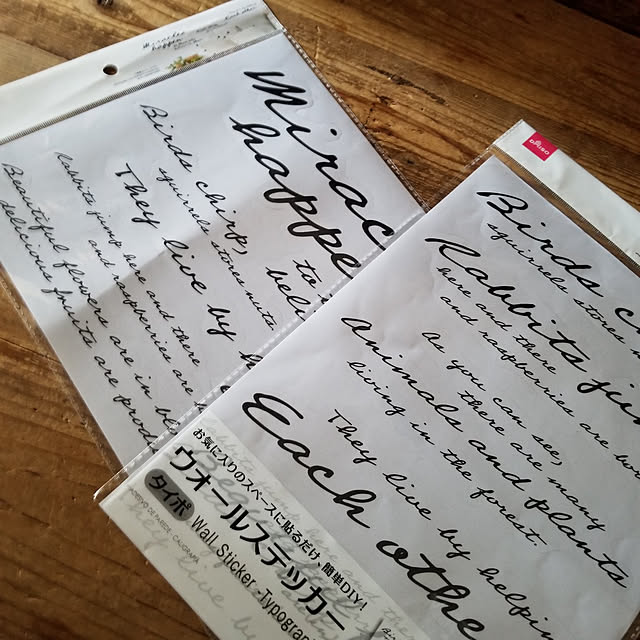 Mirac
happe
to
beli
Birds chirp,
squirrels stores nuts
They live by h
Rabbits jump here and there
and raspberries are
Beautiful flowers are in b
delicious fruits are prod
DAISO
Birds c
squirrels stores
Rabbits ju
here and there
and raspberries are
As you can see,
there are many
animals and plants
living in the forest.
They live by helpin
Each othe
お気に入りのスペースに貼るだけ、簡単DIY!
ウォールステッカー
タイポ
Wall Sticker -Typograp